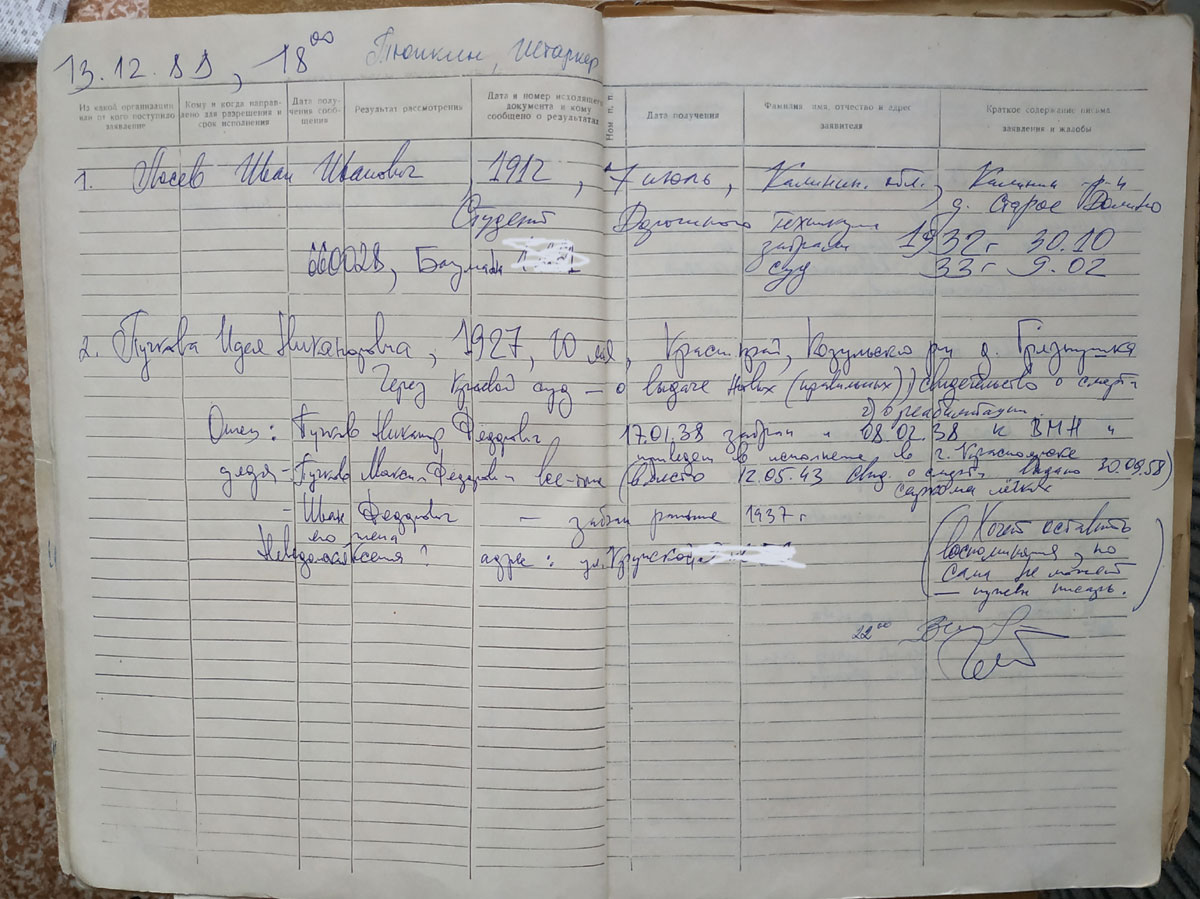 13.12.89, 18⁰⁰ Тюикин,
Из какой организации или от кого поступило заявление
Кому и когда направлено для разрешения и срок исполнения
Дата получения сообщения
Результат рассмотрения
Дата и номер исходящего документа и кому сообщено о результатах
Ном. п. п.
Дата получения
Фамилия имя, отчество и адрес заявителя
Краткое содержание письма заявления и жалобы
1. Лосев Иван Иванович, 1912, 7 июль, Калинин. обл., Калинин р-н
д. Старое
Студент техникума
забрали 1932 г 30.10
660028, Баумана
суд 33 г 9.02
2. Пучкова Идея Никаноровна, 1927, 10 мая, Красн. край, Козульского р-у д. Грязнушка
Через Краевой суд — о выдаче новых (правильных)) свидетельство о смерти
2) о реабилитации.
Отец: Пучков Никанор Федорович 17.01.38 забран и 08.02.38 к ВМН и
приведен в исполнение в г. Красноярске
дядя - Пучков Максим Федорович (вместо 12.05.43 свид. о смерти выдано 30.09.58)
- Иван Федорович — забран раньше 1937 г
его жена
адрес: ул.
(Хочет оставить
воспоминания, но
сама не может
— нужен писарь.)
22⁰⁰